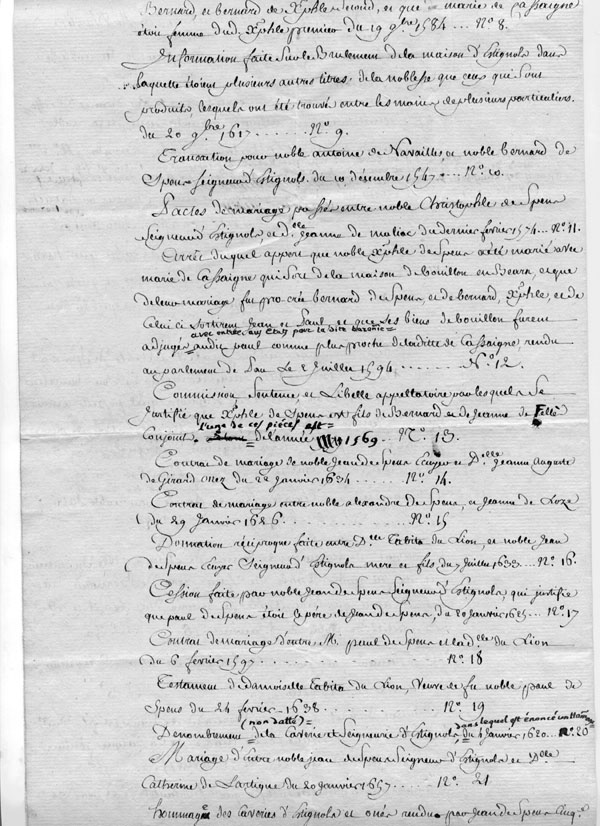 Bernard, et bernard de Xphle second, et que marie de Cassaigne
étoit femme dud. Xphle premier du 19 9bre 1584 ... No. 8.
Information faite sur le Brulement de la maison d'Estignols dans
laquelle étoient plusieurs autres titres de la noblesse que ceux qui sont
produits, lesquels ont été trouvé entre les mains de plusieurs particuliers.
du 20 9bre 1617 ........ No. 9.
Transaction pour noble antoine de Navailles, et noble bernard de
Spens Seigneur d'Estignols. du 10 décembre 1547 .... No. 10.
Pactes de mariage passés entre noble Christophle de Spens
Seigneur d'Estignols, et dlle Jeanne de du dernier fevrier 1574 ... No. 11.
Arrêt duquel appert que noble Xphle de Spens a été marié avec
marie de Cassaigne qui sort de la maison de bouillon en Bearn, et que
de leur mariage fut procrée bernard de Spens et de bernard, Xphle, et de
Celui ci sortirent Jean et Paul et que les biens de bouillon furent
avec entrée aux Etats pour la dite baronie=
adjugés audit paul comme plus proche de ladite de Cassaigne, rendu
au parlement de Pau Le 2 Juillet 1594 ........ No. 12.
Commission Sentence, et Libelle appellatoire par lesquels Se
Justifié que Xphle de Spens est fils de Bernard et de Jeanne de
l'une de ces pièces est=
Conjoint. de l'année 1569 .. No. 13.
Contrat de mariage de noble Jean de Spens Ecuyer et Dlle Jeanne Auguste
de Girard d'Onez du 22 Janvier 1634 ....... No. 14.
Contrat de mariage entre noble alexandre de Spens, et Jeanne de Loze
du 29 Janvier 1626 .............. No. 15
Donnation réciproque faite entre Dlle Tabita du Lion, et noble Jean
de Spens Ecuyer Seigneur d'Estignols mere et fils du 7 Juillet 1633 ... No. 16.
Cession faite par noble Jean de Spens Seigneur d'Estignols, qui justifie
que paul de Spens étoit le père de Jean de Spens, du 20 Janvier 1625 ... No. 17
Contrat de mariage d'entre Mr. paul de Spens et la dlle du Lion
du 6 fevrier 1597 .............. No. 18
Testament de damoiselle Tabita du Lion, Veuve de fu noble paul de
Spens du 24 fevrier 1638. ......... No. 19
(non datté)= dans lequel est énoncé un
Denombrement de la Caverie et Seigneurie d'Estignols du 4 Janvier 1620 ... No. 20
Mariage d'entre noble jean de Spens Seigneur d'Estignols et Dlle
Catherine de Lartigue du 20 Janvier 1657 ..... No. 21
hommage des Caveries d'Estignols et onès rendu par Jean de Spens